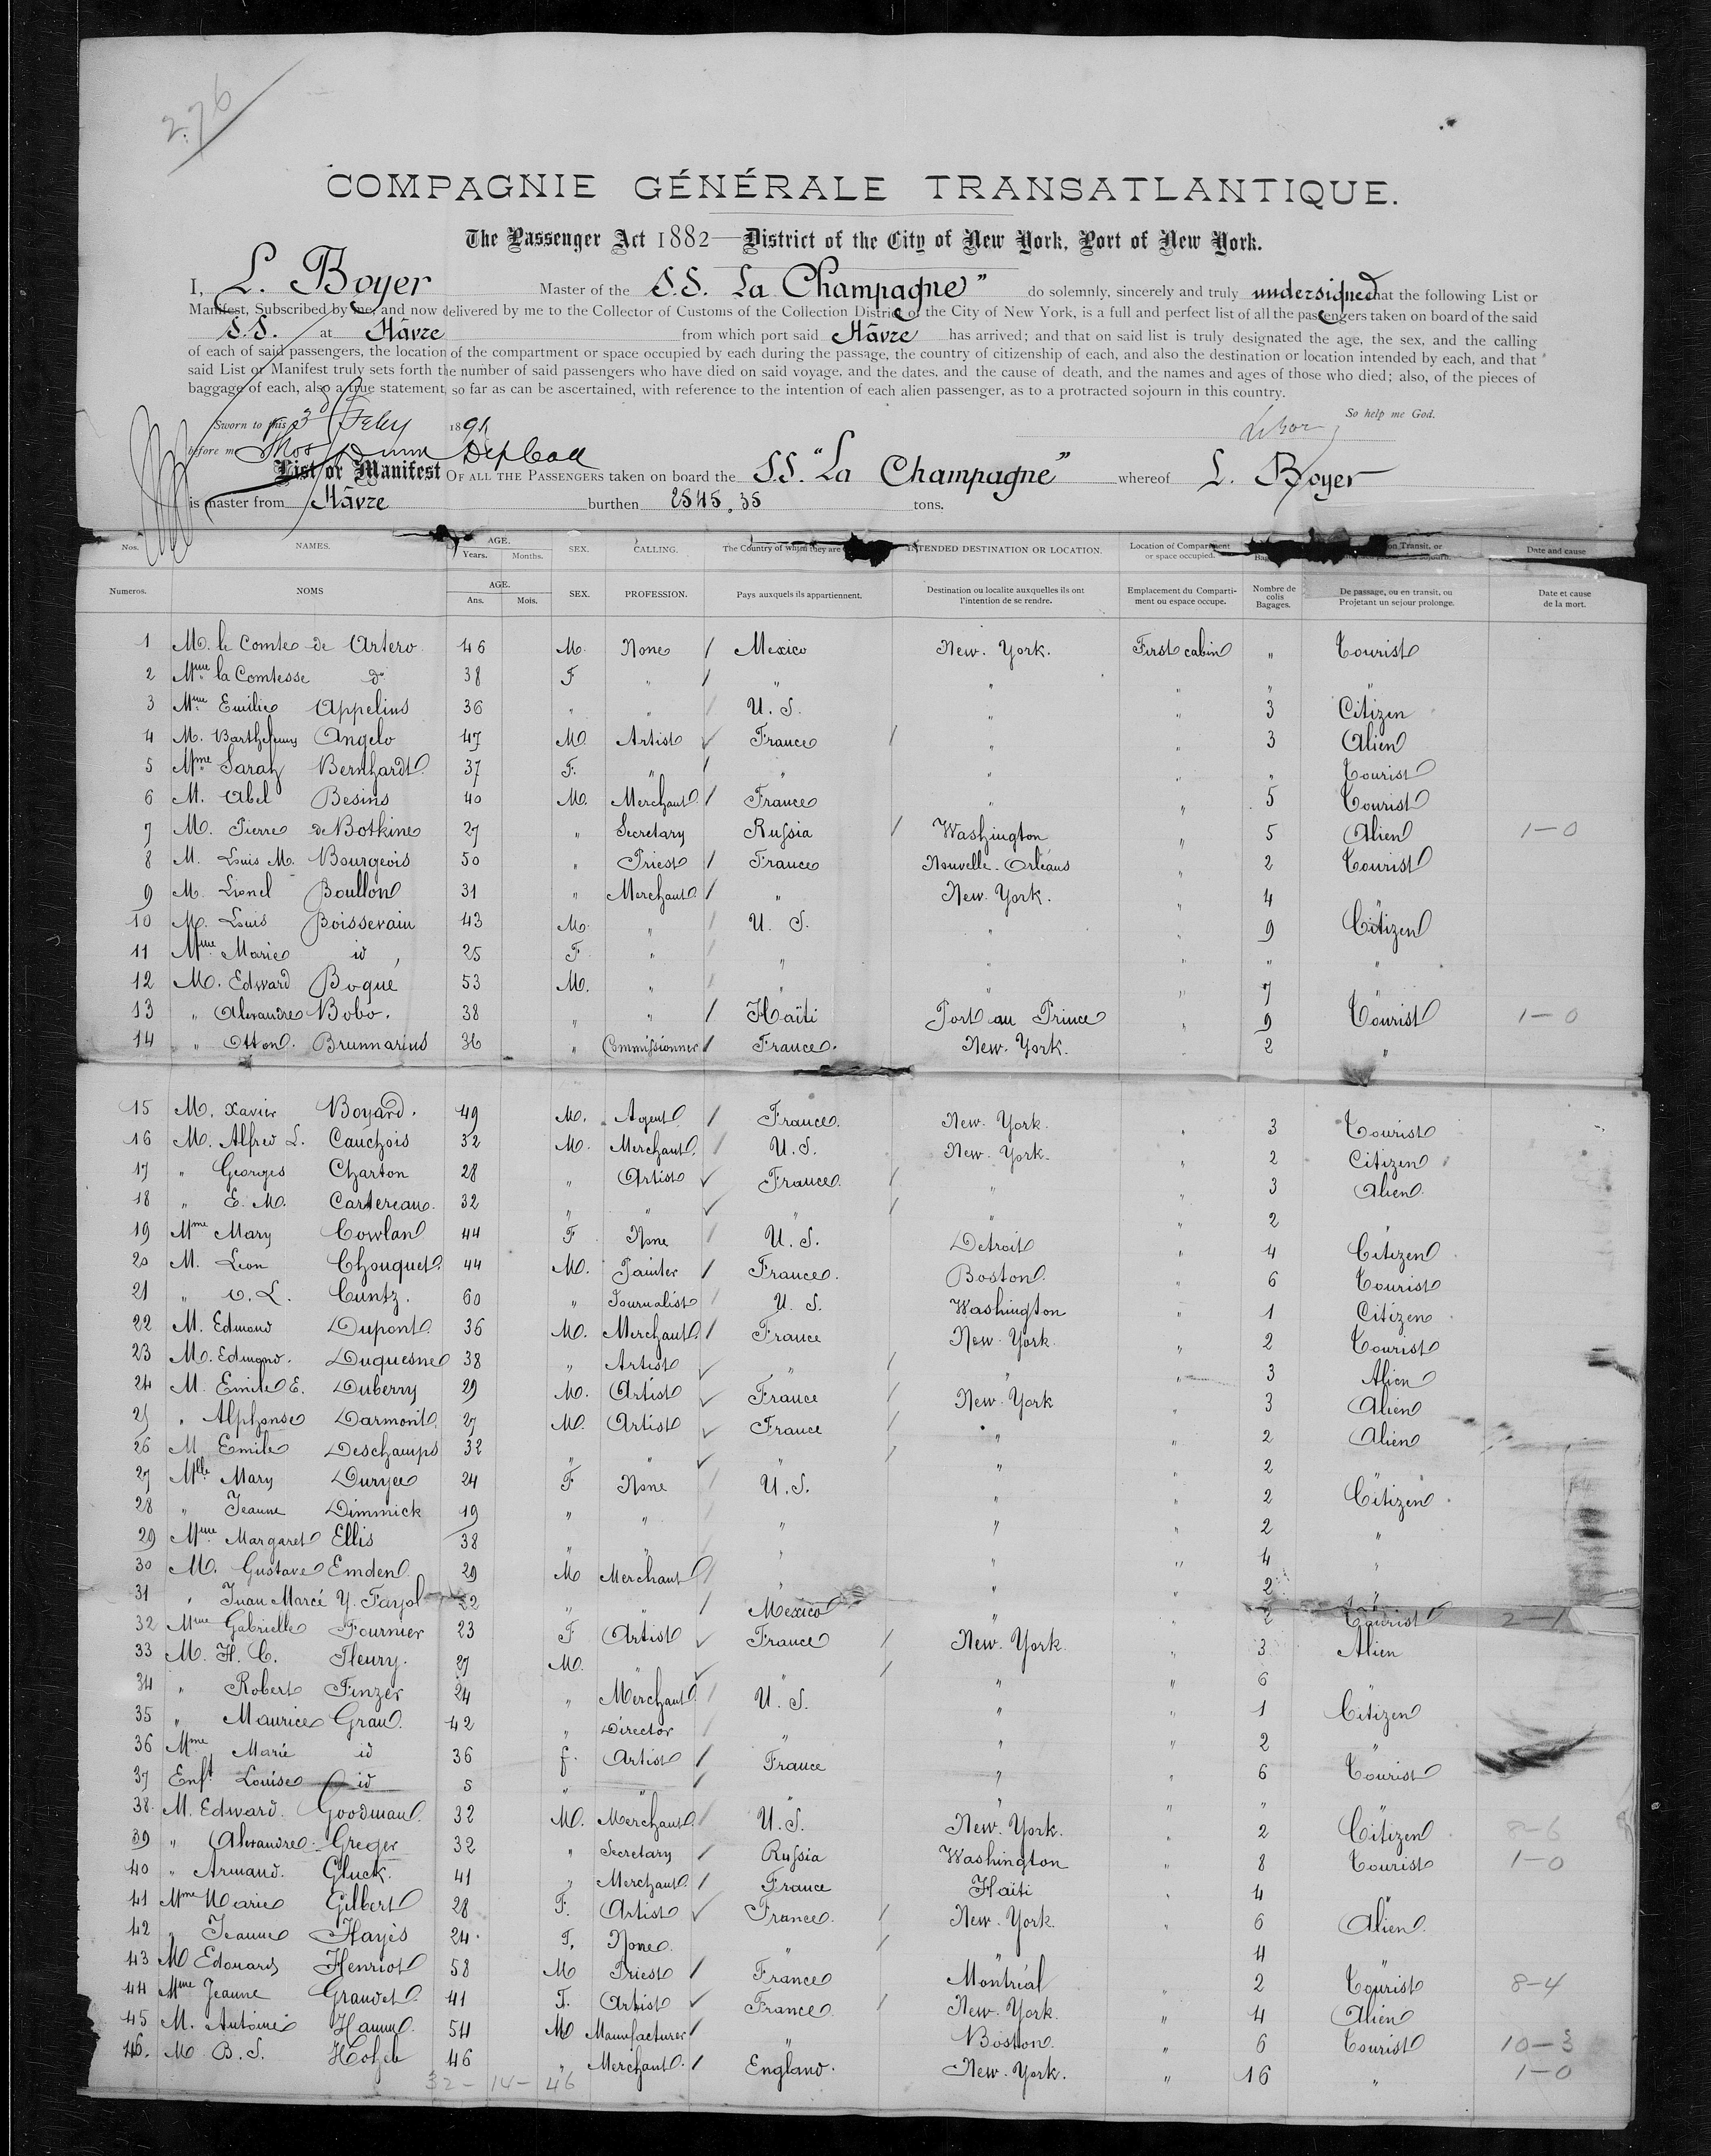 276
COMPAGNIE GÉNÉRALE TRANSATLANTIQUE.
The Passenger Act 1882—District of the City of New York, Port of New York.
I, L. Boyer Master of the S.S. La Champagne" do solemnly, sincerely and truly undersigned that the following List or
Manifest, Subscribed by me, and now delivered by me to the Collector of Customs of the Collection District of the City of New York, is a full and perfect list of all the passengers taken on board of the said
S.S. at Hâvre from which port said Hâvre has arrived; and that on said list is truly designated the age, the sex, and the calling
of each of said passengers, the location of the compartment or space occupied by each during the passage, the country of citizenship of each, and also the destination or location intended by each, and that
said List or Manifest truly sets forth the number of said passengers who have died on said voyage, and the dates, and the cause of death, and the names and ages of those who died; also, of the pieces of
baggage of each, also a true statement, so far as can be ascertained, with reference to the intention of each alien passenger, as to a protracted sojourn in this country.
So help me God.
Sworn to this 3 Feby 1891
before me Thos Dunn Dep Coll
List or Manifest OF ALL THE PASSENGERS taken on board the S.S. "La Champagne" whereof L. Boyer
is master from Hâvre burthen 2545.35 tons.
Nos. NAMES. AGE. Years. Months. SEX. CALLING. The Country of which they are INTENDED DESTINATION OR LOCATION. Location of Compartment or space occupied. Transit, or Date and cause
Numeros. NOMS AGE. Ans. Mois. SEX. PROFESSION. Pays auxquels ils appartiennent. Destination ou localite auxquelles ils ont l'intention de se rendre. Emplacement du Compartiment ou espace occupe. Nombre de colis Bagages. De passage, ou en transit, ou Projetant un sejour prolonge. Date et cause de la mort.
1 M. le Comte de Artero 46 M. None / Mexico New. York. First cabin " Tourist
2 Mme la Comtesse do 38 F " / " " " " "
3 Mme Emilie Appelius 36 " " / U. S. " " 3 Citizen
4 M. Barthelemy Angelo 47 M. Artist ✓ France / " " 3 Alien
5 Mme Sarah Bernhardt. 37 F. " / " " " " Tourist
6 M. Abel Besins 40 M. Merchant. / France " " 5 Tourist
7 M. Pierre de Botkine 27 " Secretary Russia / Washington " 5 Alien 1-0
8 M. Louis M. Bourgeois 50 " Priest / France Nouvelle-Orléans " 2 Tourist
9 M. Lionel Boullon 31 " Merchant. / " New. York. " 4
10 M. Louis Boissevain 43 M. " / U. S. " " 9 Citizen
11 Mme Marie id 25 F " / " " " " "
12 M. Edward Boqué 53 M. " / " " " 7 "
13 " Alexandre Bobo. 38 " " / Haïti Port au Prince " 9 Tourist 1-0
14 " Otton. Brunnarius 36 " Commissionner / France. New. York. 2 "
15 M. Xavier Boyard. 49 M. Agent. / France. New. York. " 3 Tourist
16 M. Alfred L. Cauchois 32 M. Merchant. / U. S. New. York. " 2 Citizen
17 " Georges Charton 28 " Artist ✓ France. / " " 3 Alien.
18 " E. M. Cartereau. 32 " " ✓ " / " " 2 "
19 Mme Mary Cowlan 44 F None / U. S. Detroit " 4 Citizen
20 M. Leon Chouquet. 44 M. Painter / France. Boston. " 6 Tourist
21 " Cuntz. 60 " Journalist / U. S. Washington " 1 Citizen
22 M. Edmond Dupont. 36 M. Merchant. / France New. York. " 2 Tourist
23 M. Edmond. Duquesne 38 " Artist ✓ " / " " 3 Alien
24 M. Emile E. Duberry 29 M. Artist ✓ France / New. York " 3 Alien
25 " Alphonse Darmont. 27 M. Artist ✓ France / " " 2 Alien
26 M. Emile Deschamps 32 " " ✓ " / " " 2 "
27 Mlle Mary Duryee 24 F None / U. S. " " 2 Citizen
28 " Jeanne Dimmick 19 " " / " " " 2 "
29 Mme Margaret Ellis 38 " " / " " " 4 "
30 M. Gustave Emden. 29 M Merchant / " " " 2 "
31 " Juan Marcé Y. Fayol 22 " " / Mexico " " 2 Tourist 2-1
32 Mme Gabrielle Fournier 23 F Artist ✓ France / New. York. " 3 Alien
33 M. H. C. Fleury. 27 M. " ✓ " / " " 6 "
34 " Robert Finzer 24 " Merchant / U. S. " " 1 Citizen
35 " Maurice Grau. 42 " Director / " " " 2 "
36 Mme Marie id 36 f. Artist / France " " 6 Tourist
37 Enft Louise id 5 " " / " " " " "
38. M. Edward. Goodman. 32 M. Merchant. / U. S. New. York. " 2 Citizen 8-6
39 " Alexandre. Greger 32 " Secretary / Russia Washington " 8 Tourist 1-0
40 " Armand. Gluck. 41 " Merchant. / France Haïti " 4 "
41 Mme Marie Gilbert 28 F. Artist ✓ France. / New. York. " 6 Alien.
42 " Jeanne Hayès 24. F. None. " / " 4 "
43 M Edouard Henriot 58 M Priest / France Montréal " 2 Tourist 8-4
44 Mme Jeanne Grandet. 41 F. Artist ✓ France / New. York. " 4 Alien
45 M. Antoine 54 M Manufacturer / " Boston. " 6 Tourist 10-3
46. M B. S. 46 " Merchant. / England. New. York. " 16 " 1-0
32- 14- 46